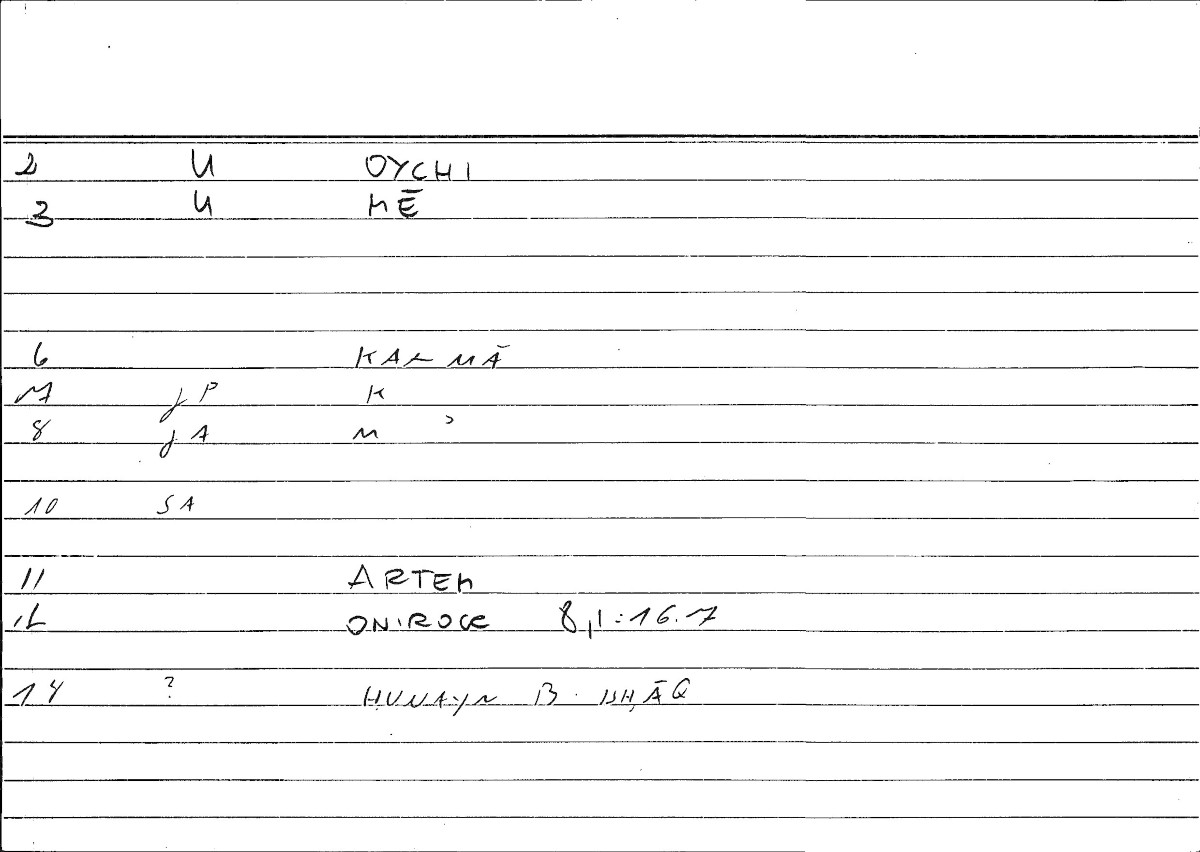 2 U OYCHI
3 U MĒ
6 KALMĀ
7 jP K
8 jA M ʾ
10 SA
11 ARTEM
12 ONIROCR 8,1:16.7
14 ? ḤUNAYN B. ISḤĀQ